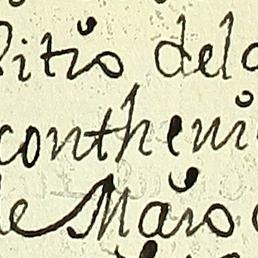 itio del
contheni
de Maio